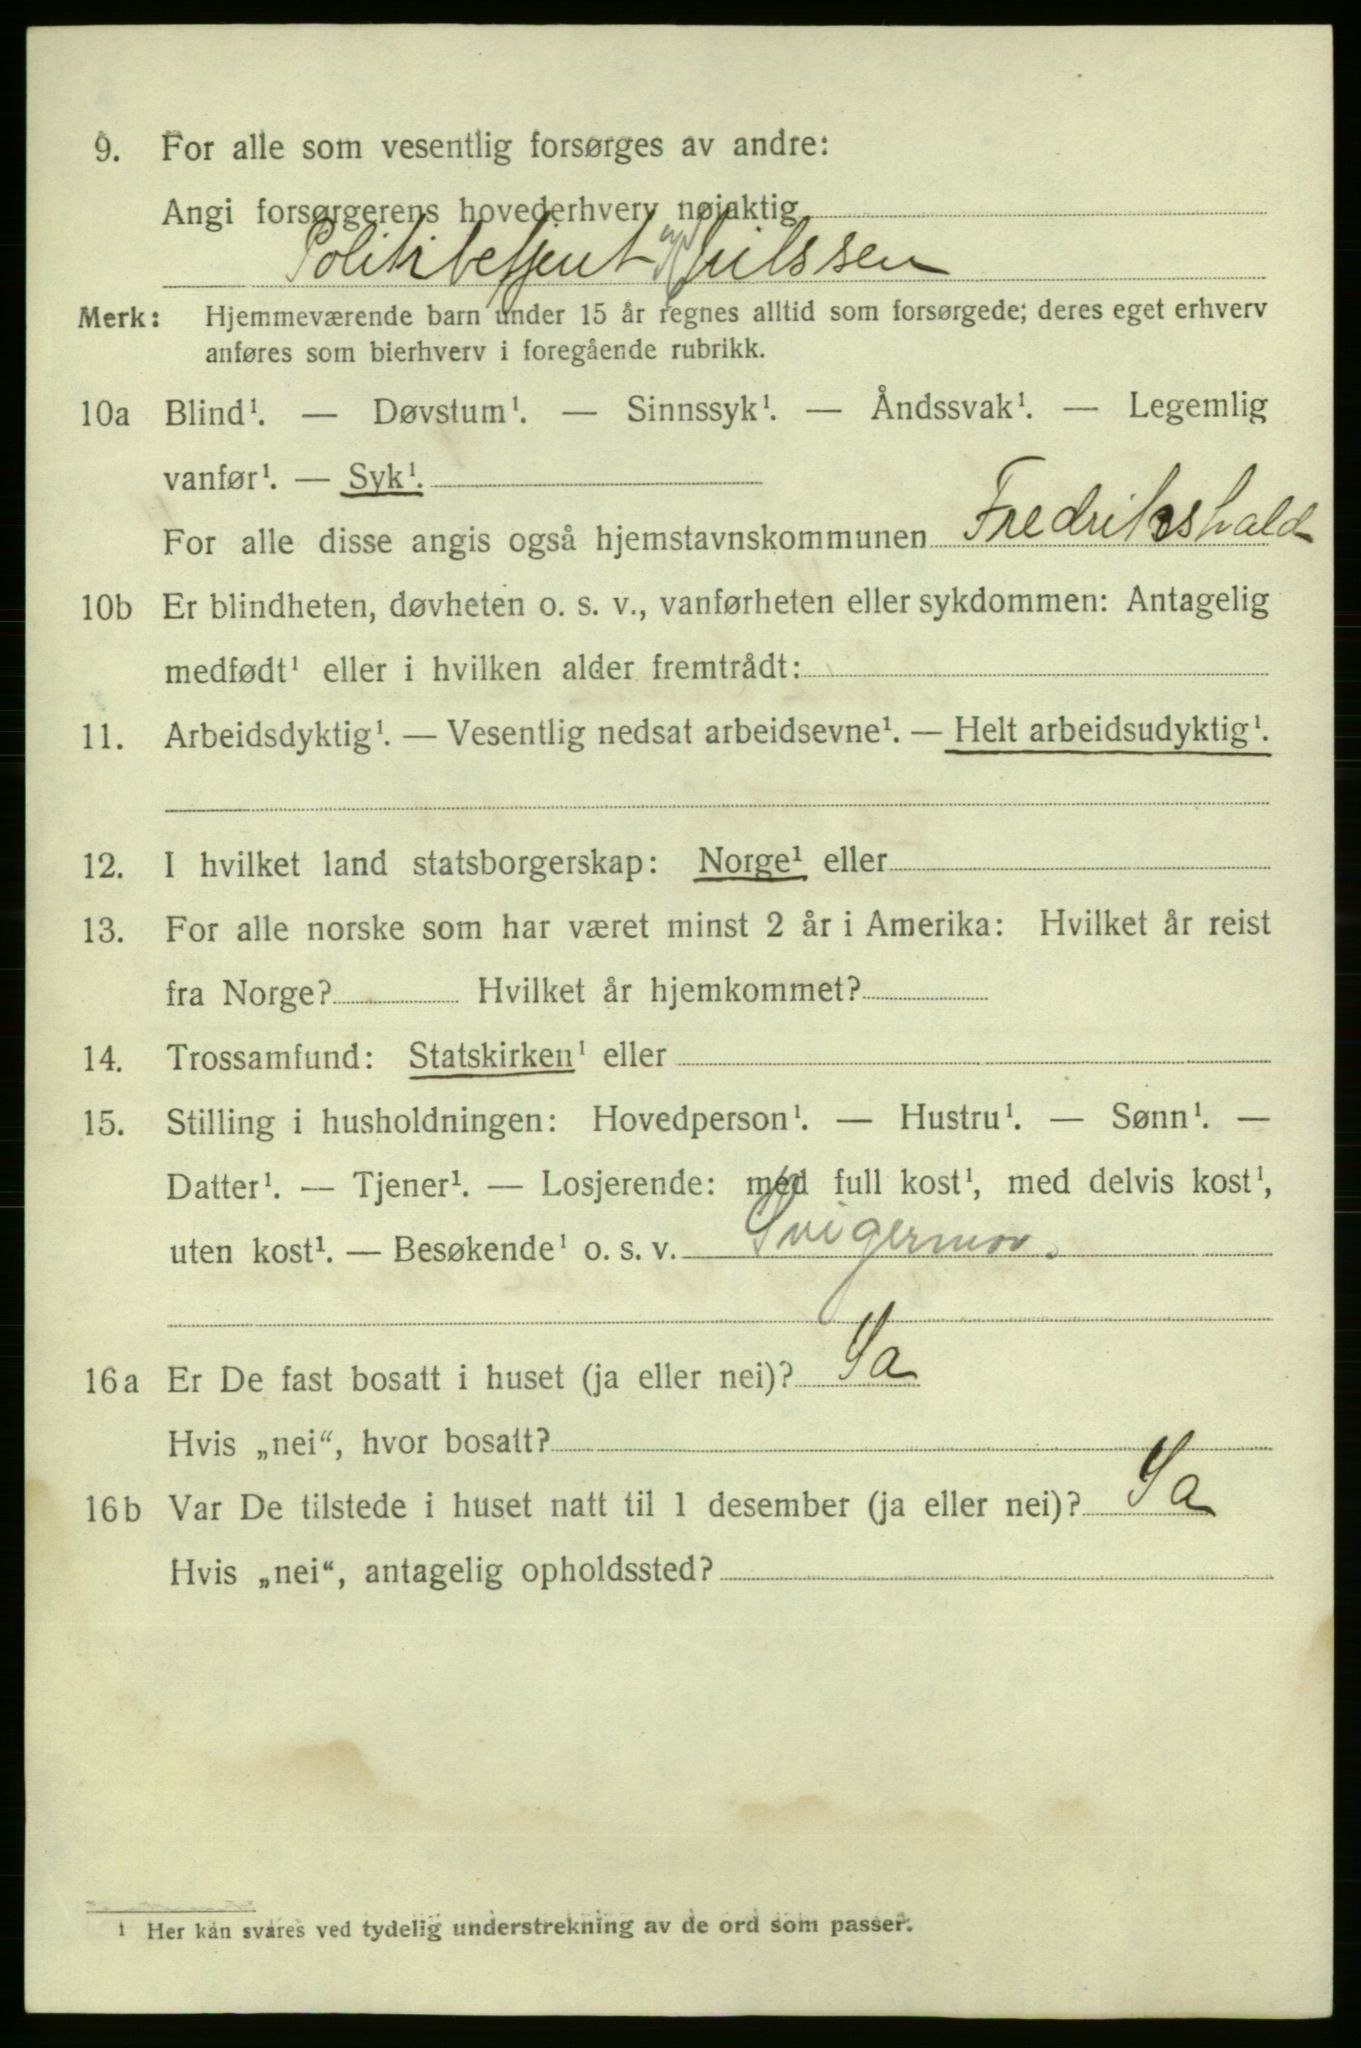 9. For alle som vesentlig forsørges av andre:
Angi forsørgerens hovederhverv nøiaktig
Politibetjent Nilssen
Merk: Hjemmeværende barn under 15 år regnes alltid som forsørgede; deres eget erhverv
anføres som bierhverv i foregående rubrikk.
10a Blind¹. — Døvstum¹. — Sinnssyk¹. — Åndssvak¹. — Legemlig
vanfør¹. — Syk¹.
For alle disse angis også hjemstavnskommunen Fredrikshald
10b Er blindheten, døvheten o. s. v., vanførheten eller sykdommen: Antagelig
medfødt¹ eller i hvilken alder fremtrådt:
11. Arbeidsdyktig¹. — Vesentlig nedsat arbeidsevne¹. — Helt arbeidsudyktig¹.
12. I hvilket land statsborgerskap: Norge¹ eller
13. For alle norske som har været minst 2 år i Amerika: Hvilket år reist
fra Norge? Hvilket år hjemkommet?
14. Trossamfund: Statskirken¹ eller
15. Stilling i husholdningen: Hovedperson¹. — Hustru¹. — Sønn¹. —
Datter¹. — Tjener¹. — Losjerende: med full kost¹, med delvis kost¹,
uten kost¹. — Besøkende¹ o. s. v. Svigermor.
16a Er De fast bosatt i huset (ja eller nei)? Ja
Hvis „nei“, hvor bosatt?
16b Var De tilstede i huset natt til 1 desember (ja eller nei)? Ja
Hvis „nei“, antagelig opholdssted?
1 Her kan svares ved tydelig understrekning av de ord som passer.